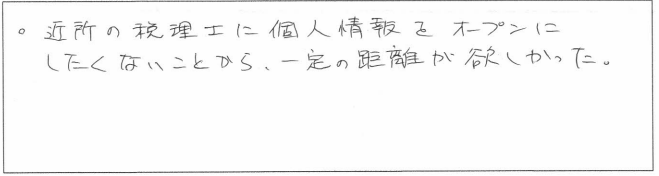 。近所の税理士に個人情報をオープンに
したくないことから、一定の距離が欲しかった。